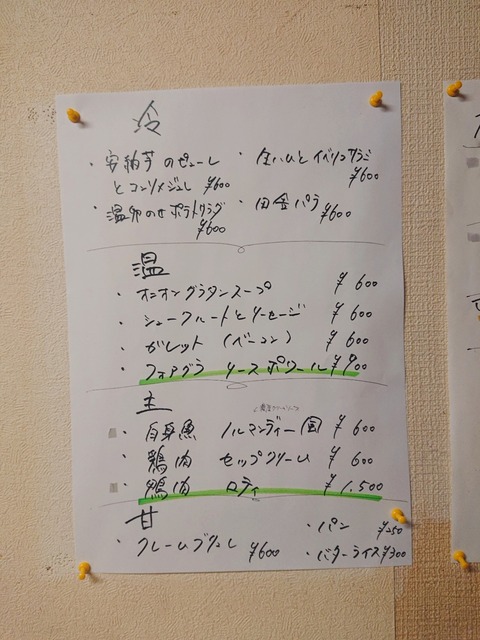 冷
・安納芋のピューレ
とコンソメジュレ ¥600
・生ハムとイベリコサラミ
¥600
・温卵のせポテトサラダ
¥600
・田舎パテ ¥600
温
・オニオングラタンスープ ¥600
・シュークルートとソーセージ ¥600
・ガレット (ベーコン) ¥600
・フォアグラ ソースポワール ¥900
主
・白身魚 ノルマンディー風 ¥600
・鶏肉 セップクリーム ¥600
・鴨肉 ロティ ¥1,500
甘
・クレームブリュレ ¥600
・パン ¥250
・バターライス ¥300